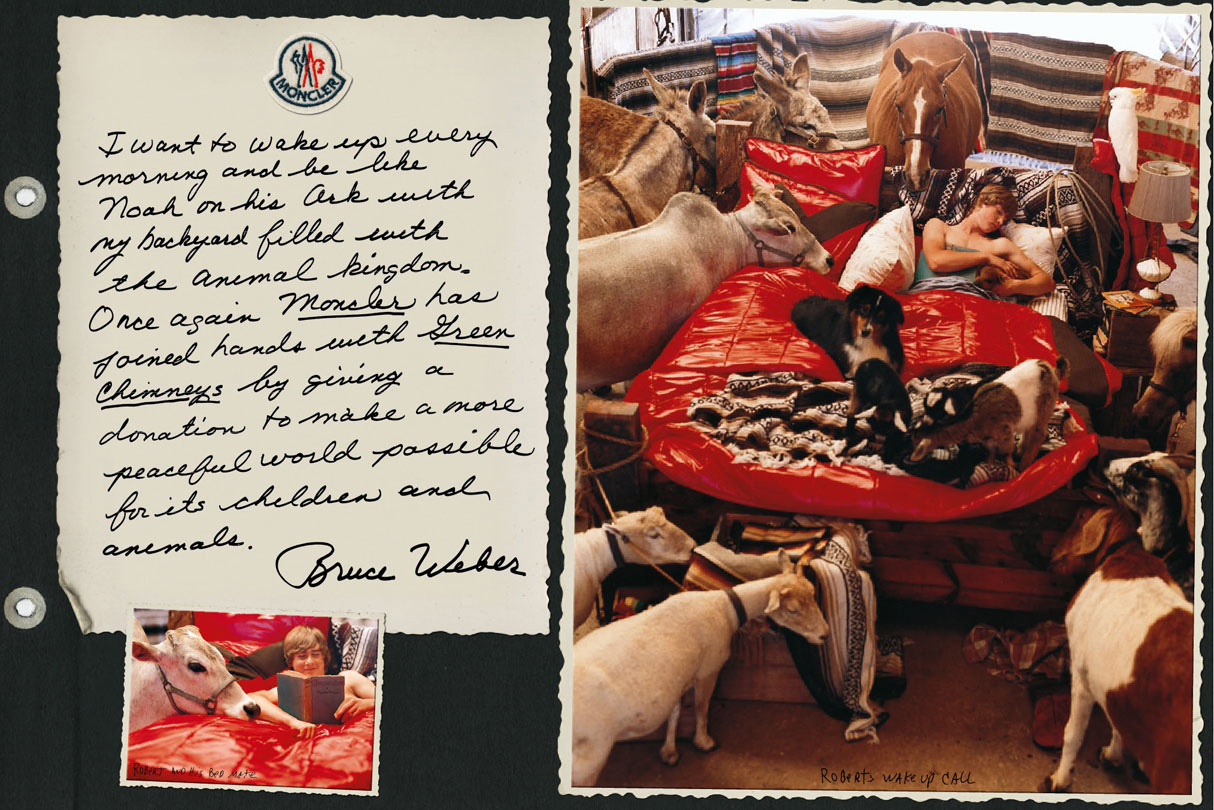 MONCLER
I want to wake up every
morning and be like
Noah on his Ark with
my backyard filled with
the animal kingdom.
Once again Moncler has
joined hands with Green
Chimneys by giving a
donation to make a more
peaceful world possible
for its children and
animals.
Bruce Weber
ROBERT AND HIS BED MATE
ROBERTS WAKE UP CALL